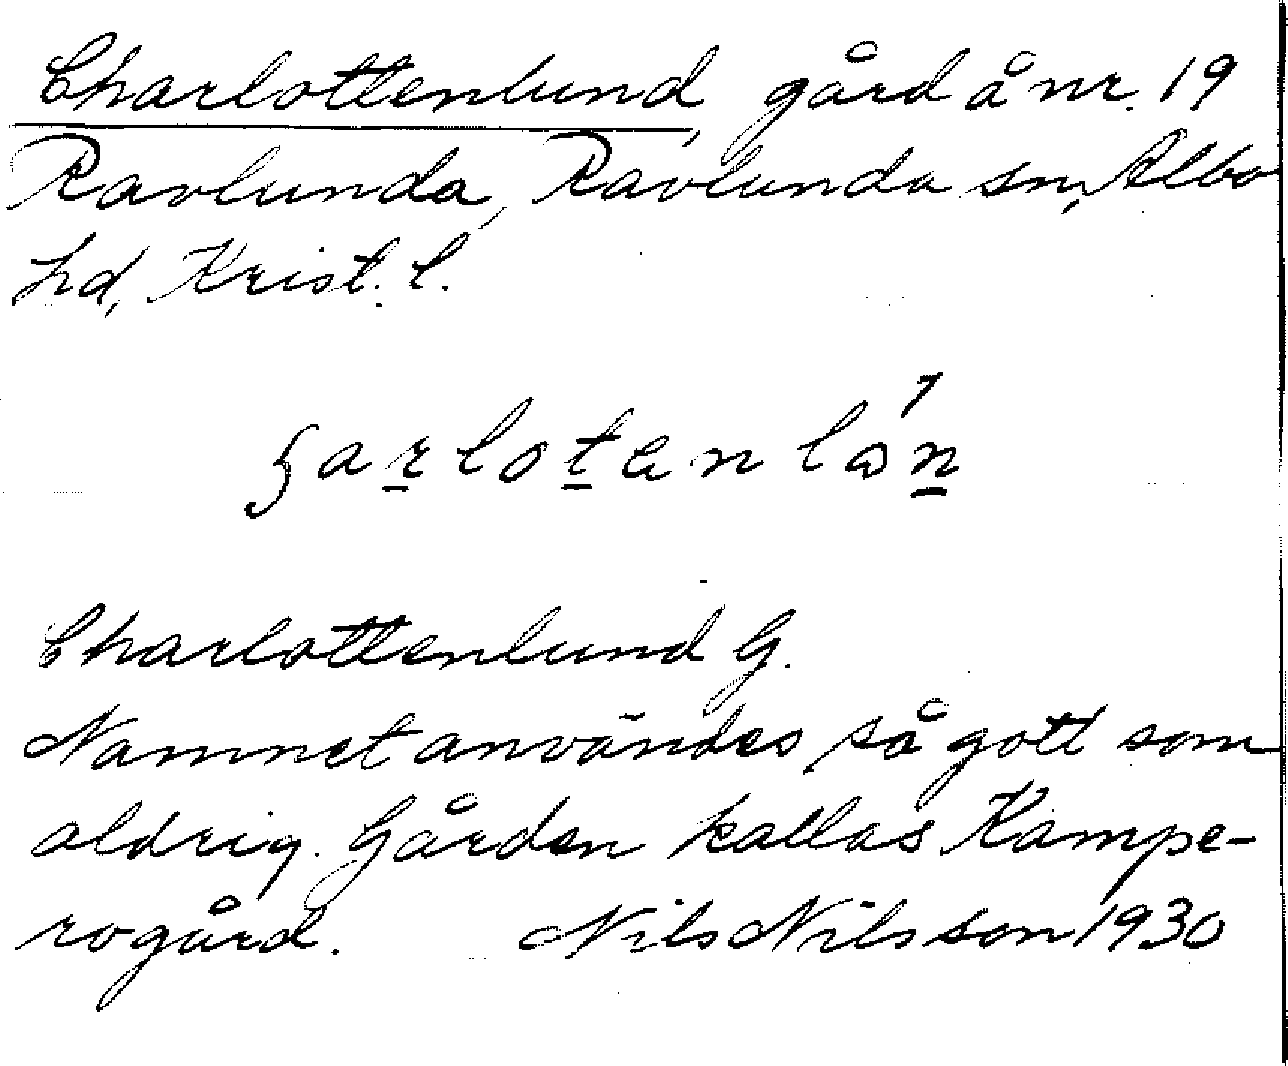 Charlottenlund, gård å nr. 19
Ravlunda, Ravlunda sn, Albo
hd, Krist. l.
Charlottenlund G.
Namnet användes så gott som
aldrig. Gården kallas Kampe-
rogård. Nils Nilsson 1930